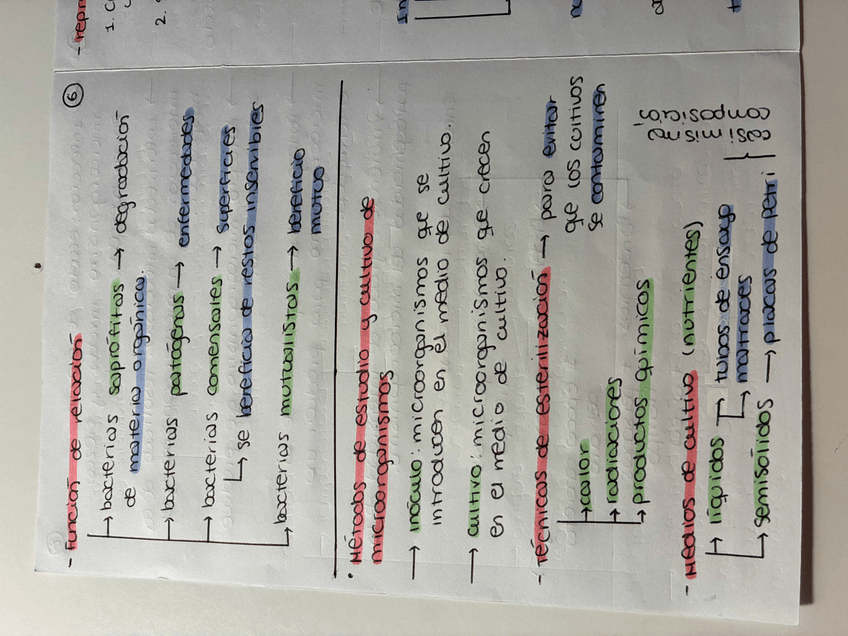 6
- Función de relación
→ bacterias saprófitas → degradación
de materia orgánica.
→ bacterias patógenas → enfermedades
→ bacterias comensales → superficies
↳ se beneficia de restos inservibles
→ bacterias mutualistas → beneficio
mutuo
· Métodos de estudio y cultivo de
microorganismos
→ inóculo: microorganismos que se
introducen en el medio de cultivo.
→ cultivo: microorganismos que crecen
en el medio de cultivo.
- Técnicas de esterilización → para evitar
que los cultivos
se contaminen
→ calor
→ radiaciones
→ productos químicos
- Medios de cultivo (nutrientes)
→ líquidos → tubos de ensayo
→ matraces
→ semisólidos → placas de petri
casi misma
composición
- repr
1.
2.